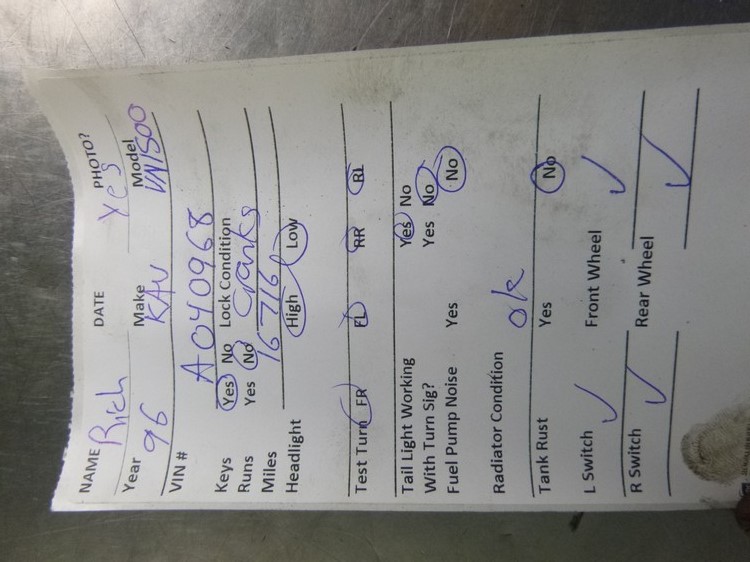 NAME Rich DATE PHOTO? Yes
Year 96 Make KAW Model VN1500
VIN # A040968
Keys Yes No Lock Condition
Runs Yes No Cranks
Miles 16716
Headlight High Low
Test Turn FR FL RR RL
Tail Light Working Yes No
With Turn Sig? Yes No
Fuel Pump Noise Yes No
Radiator Condition ok
Tank Rust Yes No
L Switch ✓ Front Wheel ✓
R Switch ✓ Rear Wheel ✓